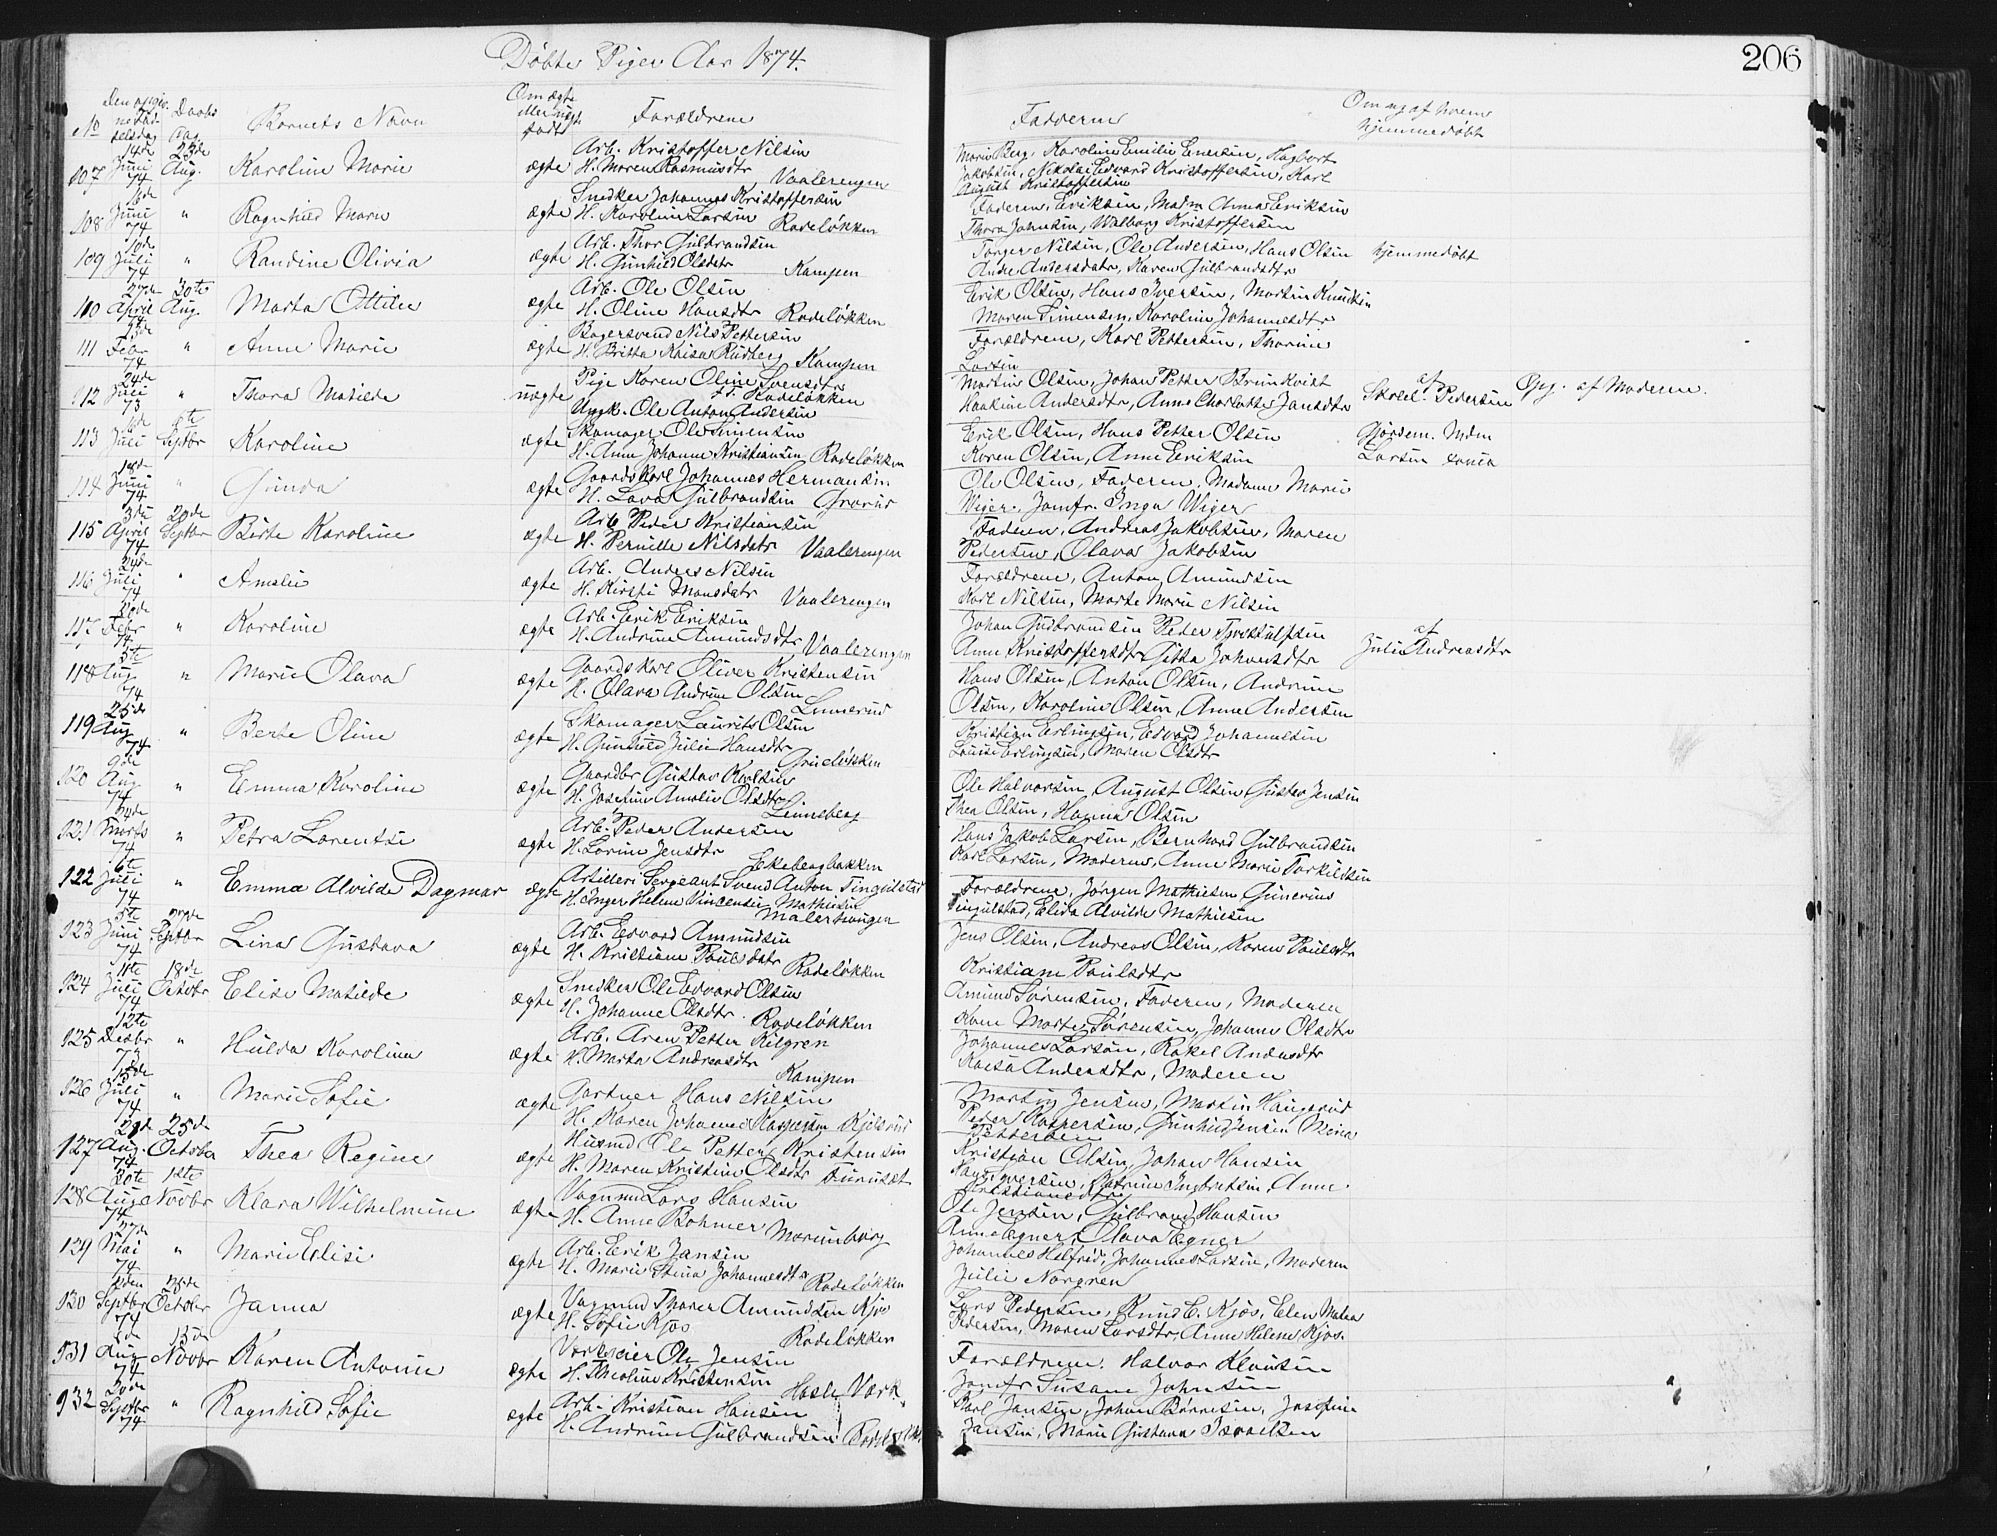 Døbte Piger Aar 1874.
206
No
Daabs
Dag
Barnets Navn
Om ægte
eller uægte
født
Forældrene
Fadderne
Om og af hvem
hjemmedøbt
107 14de Juni 74 23de Aug. Karoline Marie ægte Arb. Kristoffer Nilsen
H. Maren Rasmusdtr Vaalerengen
Marie Berg, Karoline Emilie Enersen, Hagbart
Jakobsen, Nikolai Edvard Kristoffersen, Karl
August Kristoffersen
108 Juni 74 " Ragnhild Marie ægte Snedker Johannes Kristoffersen
H. Karoline Larsen Rodeløkken
Faderen, Eriksen, Madm Anna Eriksen
Thora Johnsen, Walborg Kristoffersen
109 10de Juli 74 " Randine Olivia ægte Arb. Thor Gulbrandsen
H. Gunhild Olsdatr Kampen
Torger Nilsen, Ole Andersen, Hans Olsen hjemmedøbt
Andersdatr, Karen Gulbrandsdtr
110 27de April 74 30te Aug. Marta Ottilie ægte Arb. Ole Olsen
H. Oline Hansdtr Rodeløkken
Erik Olsen, Hans Iversen, Martin Knudsen
Maren Simensen, Karoline Johannesdtr
111 Febr 74 " Anne Marie ægte Bagersvend Nils Pettersen
H. Britta Kaisa Rudberg Kampen
Forældrene, Karl Pettersen, Thorine
Larsen
112 24de Juli 73 " Thora Matilde uægte Pige Karen Oline Svensdtr
Rodeløkken
Ungk. Ole Anton Andersen
Martin Olsen, Johan Petter Brunkvist
Haakine Andersdtr, Anne Charlotte Jansdtr
af Pedersen Opg. af Moderen.
113 Juli 6te Septbr Karoline ægte Skomager Ole Simensen
H. Anne Johanne Kristiansen Rodeløkken
Erik Olsen, Hans Petter Olsen Gjordem. Mdm
Karen Olsen, Anne Eriksen Larsen
114 Juni 74 " Gunda ægte Gaardskarl Johannes Hermansen
H. Lava Gulbrandsen Grorud
Ole Olsen, Faderen, Madame Marie
Wiger, Jomfr. Inga Wiger
115 3de April 74 20de Septbr Birte Karoline ægte Arb Peder Kristiansen
H. Pernille Nilsdatr Vaalerengen
Faderen, Andreas Jakobsen, Maren
Pedersen, Olava Jakobsen
116 24de Juli 74 " Amalie ægte Arb. Anders Nilsen
H. Kirsti Monsdatr Vaalerengen
Forældrene, Anton Amundsen
Karl Nilsen, Marte Marie Nilsen
117 Febr 74 " Karoline ægte Arb. Erik Eriksen
H. Andrine Amundsdtr Vaalerengen
Johan Gudbrandsen Peder
Anne Kristoffersdtr, Gitta Johansdtr af Julie Andreasdtr
118 5te Aug 74 " Marie Olava ægte Gaardskarl Oliver Kristensen
H. Olava Andrine Olsen Linnerud
Hans Olsen, Anton Olsen, Andrine
Olsen, Karoline Olsen, Anne Andersen
119 25de Aug 74 " Berte Oline ægte Skomager Laurits Olsen
H. Gunhild Julie Hansdtr Grüeløkken
Kristian Erlingsen, Edvard Johannesen
Louise Erlingsen, Maren Olsdtr
120 9de Aug 74 " Emma Karoline ægte Gaardbr Gustav Karlsen
H. Josefine Amalie Olsdtr Linneberg
Ole Halvorsen, August Olsen Gustav Jensen
Thea Olsen, Hanna Olsen
121 Marts 74 " Petra Lorentse ægte Arb. Peder Andersen
H. Lorine Jensdtr Ekebergbakken
Hans Jakob Larsen, Bernhard Gulbrandsen
Karl Larsen, Moderen, Anne Marie Torkildsen
122 6te Juli 74 " Emma Alvilde Dagmar ægte Artilleri Sergeant Svend Anton Tingulstad
H. Inger Helene Vincensie Mathisen
Malerhaugen
Forældrene, Jørgen Mathiesen Gunerius
Tingulstad, Elida Alvilde Mathiesen
123 5te Juni 74 27de Septbr Lina Gustava ægte Arb. Edvard Amundsen
H. Kristiane Paulsdatr Rodeløkken
Jens Olsen, Andreas Olsen, Karen Paulsdtr
Kristiane Paulsdtr
124 11te Juli 74 18de Octobr Elise Matilde ægte Snedker Ole Edvard Olsen
H. Johanne Olsdtr. Rodeløkken
Amund Sørensen, Faderen, Moderen
Kone Marte Sørensen, Johanne Olsdtr
125 12te Desbr 73 " Hulda Karoline ægte Arb. Aren Petter Kilgren
H. Marta Andreasdtr Kampen
Johannes Larsen, Rakel Andersdtr
Kaisa Andersdtr, Moderen
126 Juli 74 " Marie Sofie ægte Gartner Hans Nilsen
H. Karen Johanne Kaspersen Kjelsrud
Martin Jensen, Martin Haugerud
Peder Kaspersen, Gunhild Jensen Mina
Pettersen
127 21de Aug. 74 25de October Thea Regine ægte Husmd Ole Petter Kristensen
H. Maren Kristine Olsdtr Furuset
Kristian Olsen, Johan Hansen
Katrine Ingbretsen, Anne
Kristiansdtr
128 30te Aug 74 1ste Novbr Klara Wilhelmine ægte Vognmd Lars Hansen
H. Anne Bohmer Marienborg
Ole Jensen, Gulbrand Hansen
Anne Egner, Olava Egner
129 27de Mai 74 " Marie Elise ægte Arb. Erik Jansen
H. Marie Stina Johannesdtr Rodeløkken
Johannes Helfrid, Johannes Larsen, Moderen
Julie Norgren
130 Septbr 74 25de October Janna ægte Vognmd Thorer Amundsen Kjøs
H. Sofie Kjøs Rodeløkken
Lars Pedersen, Knud E. Kjøs, Elen Malea
Pedersen, Maren Larsdtr, Anne Helene Kjøs.
131 Aug 74 15de Novbr Karen Antonie ægte Værkseier Ole Jensen
H. Nicoline Kristensen Hasle Værk
Forældrene, Halvor Klausen
Jomfr Susane Johnsen
132 30de Septbr 74 " Ragnhild Sofie ægte Arb. Kristian Hansen
H. Andrine Gulbrandsen
Karl Jansen, Johan Børresen, Josefine
Jansen, Marie Gustava Israelsen